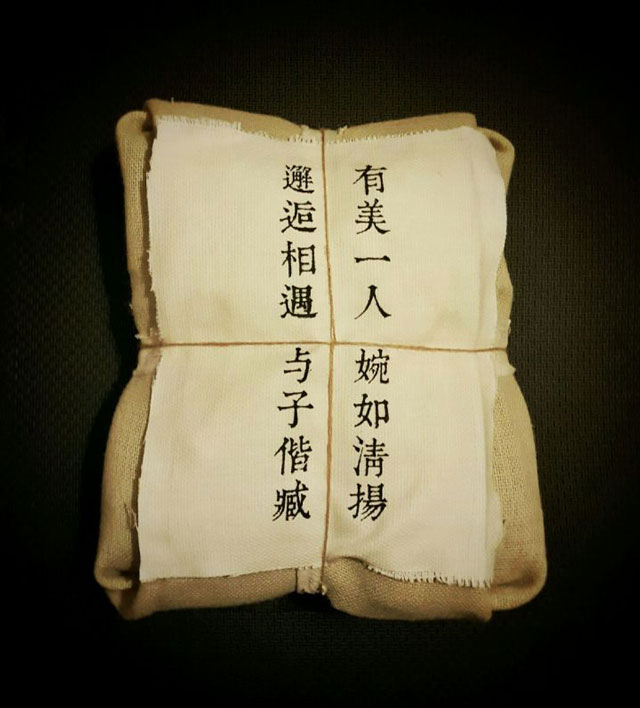 有美一人 婉如淸揚
邂逅相遇 与子偕臧